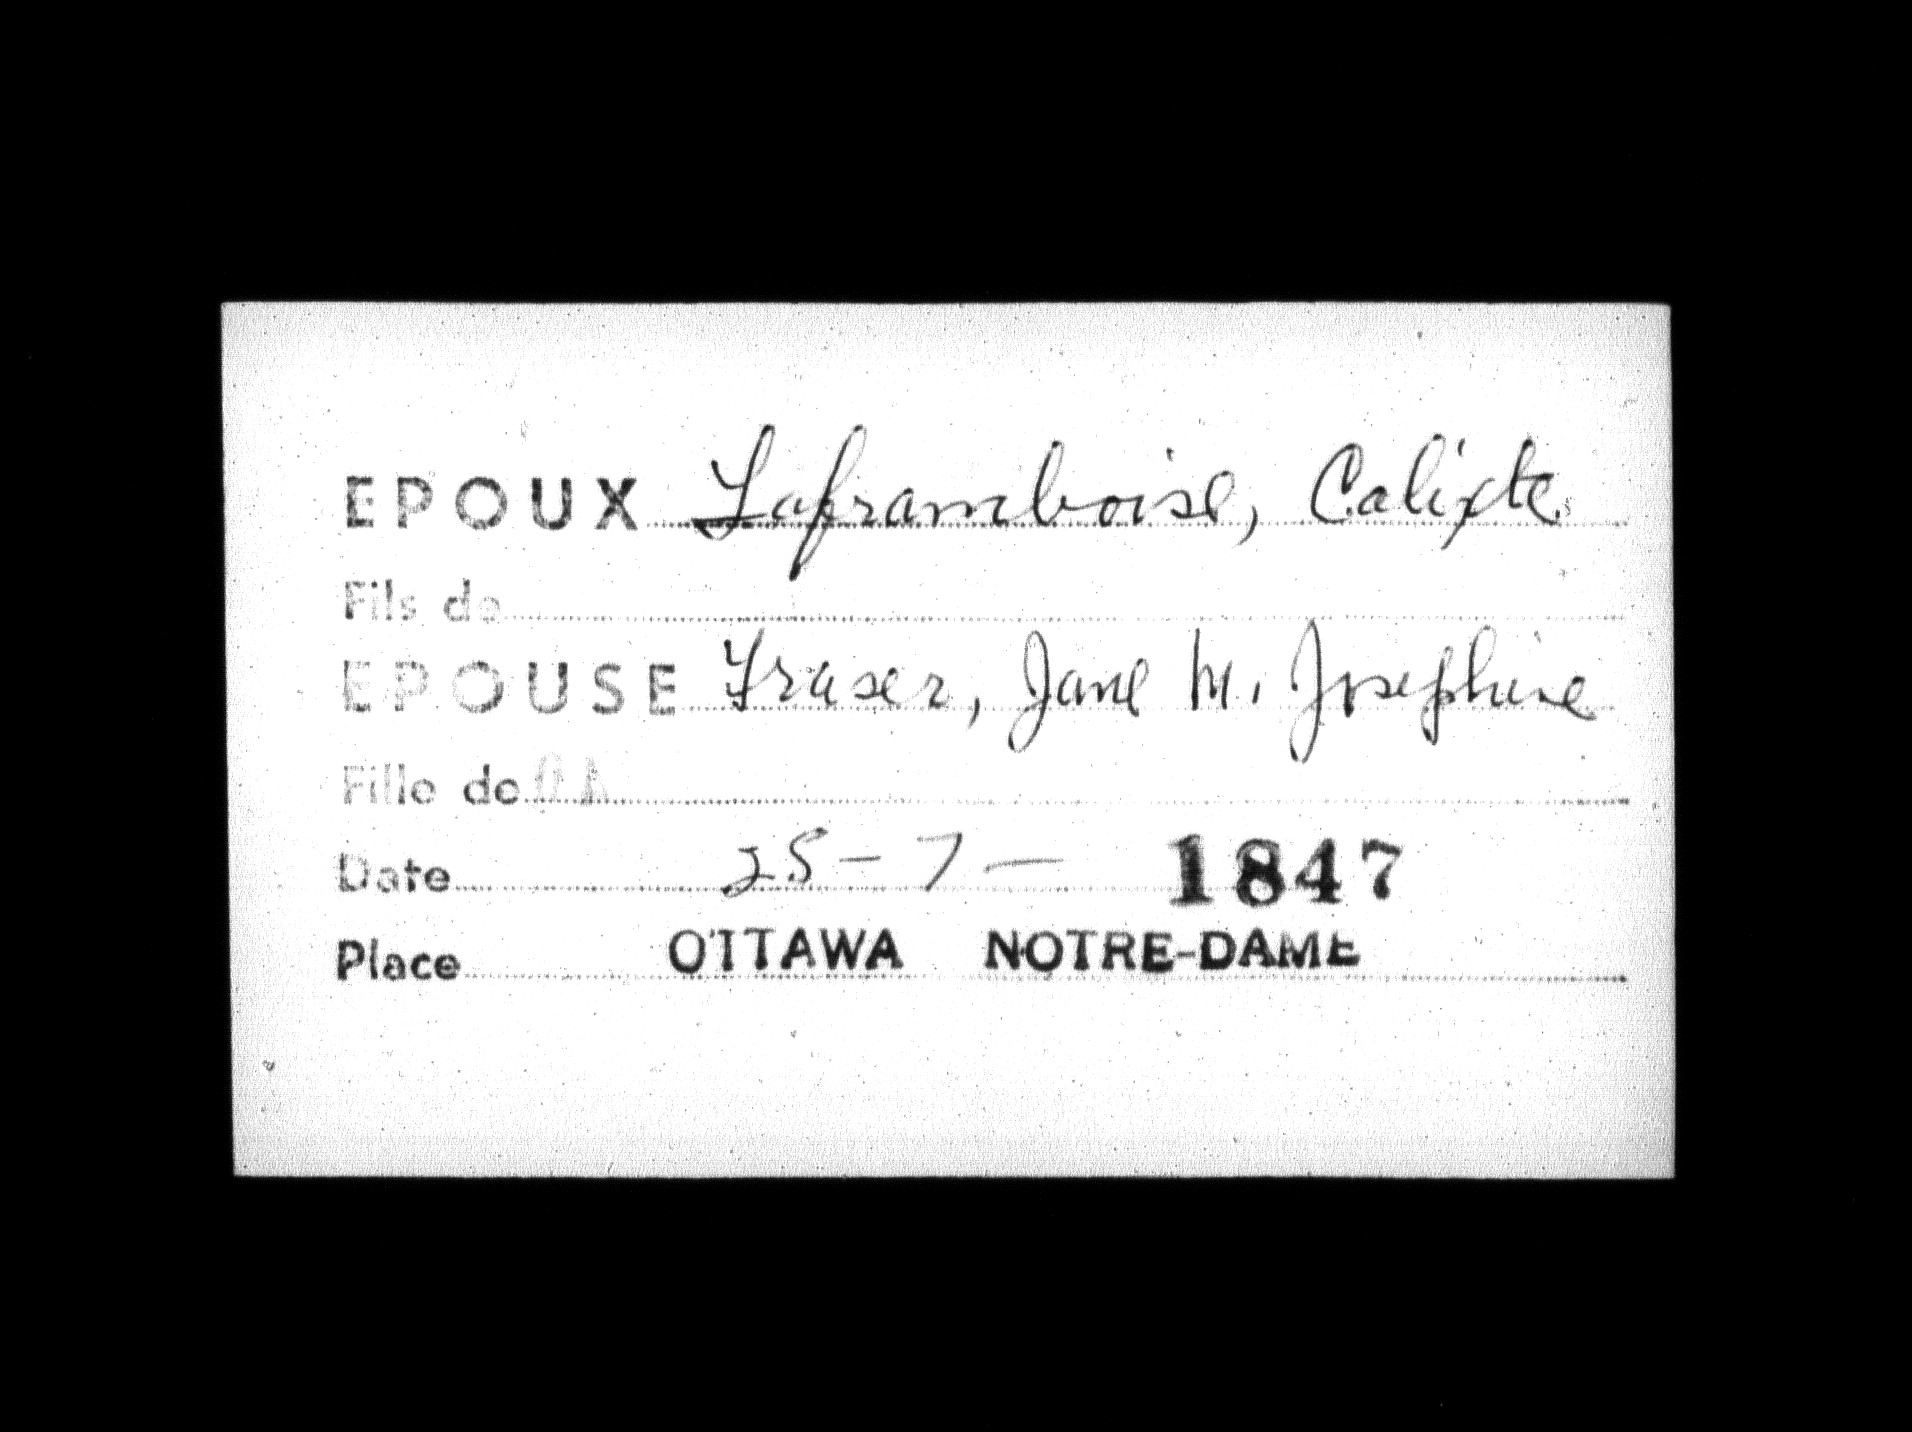 EPOUX Laframboise, Calixte
Fils de
EPOUSE Fraser, Jane M. Josephine
Fille de
Date 25-7- 1847
Place OTTAWA NOTRE-DAME